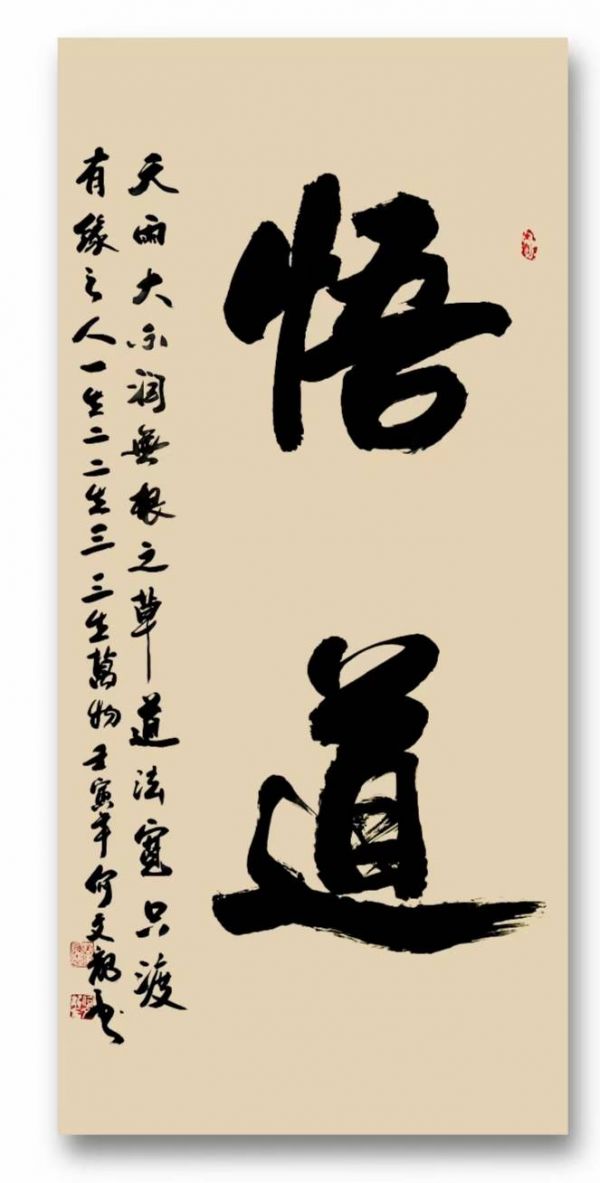 悟道
天雨大不润無根之草道法寬只渡
有緣之人一生二二生三三生萬物壬寅年何文龍书